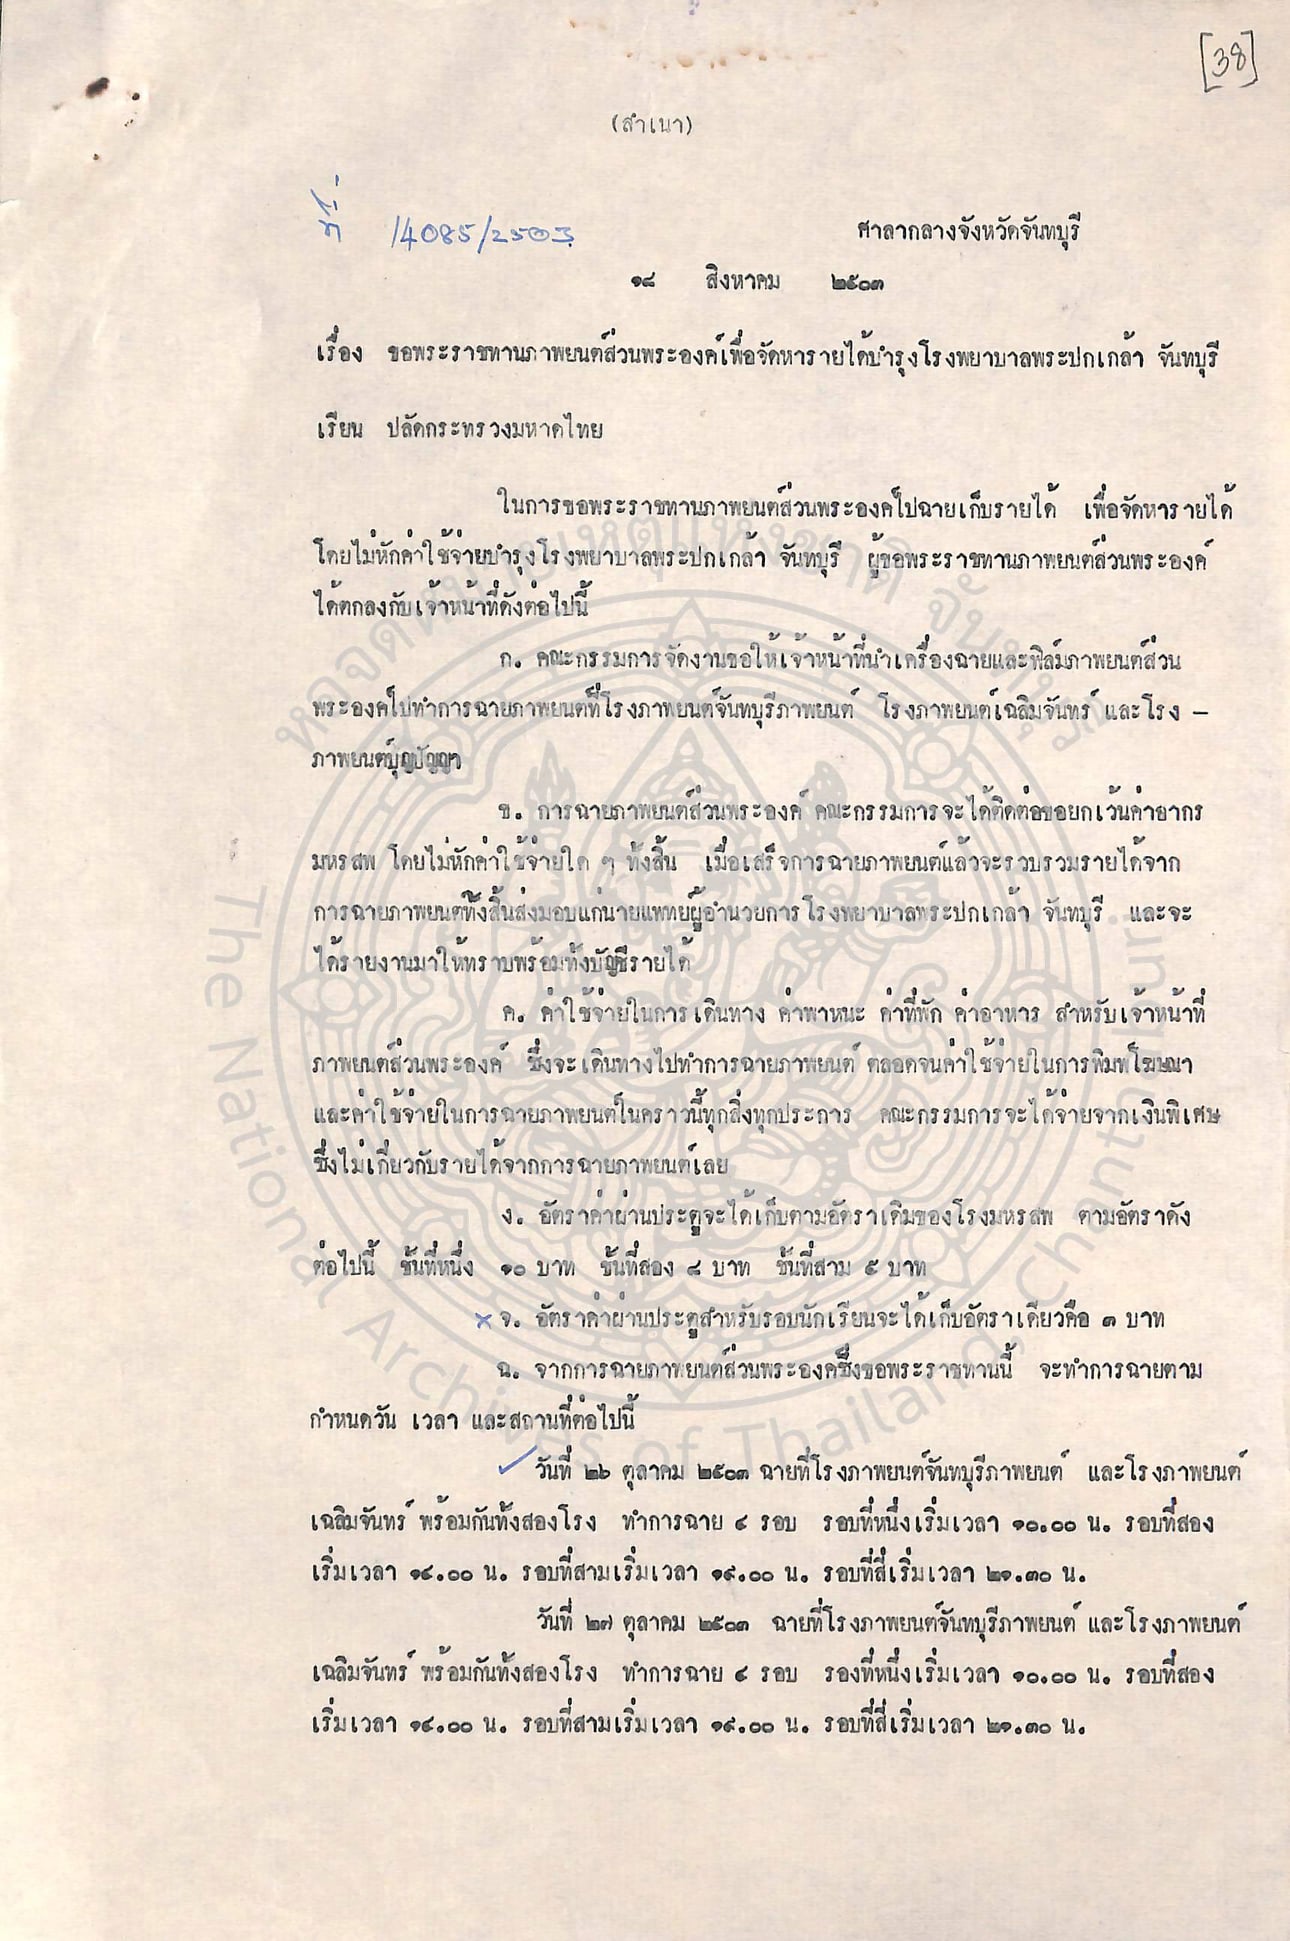 [38]
(สำเนา)
ที่ /4085/2503 ศาลากลางจังหวัดจันทบุรี
๑๘ สิงหาคม ๒๕๐๓
เรื่อง ขอพระราชทานภาพยนต์ส่วนพระองค์เพื่อจัดหารายได้บำรุงโรงพยาบาลพระปกเกล้า จันทบุรี
เรียน ปลัดกระทรวงมหาดไทย
ในการขอพระราชทานภาพยนต์ส่วนพระองค์ไปฉายเก็บรายได้ เพื่อจัดหารายได้
โดยไม่หักค่าใช้จ่ายบำรุงโรงพยาบาลพระปกเกล้า จันทบุรี ผู้ขอพระราชทานภาพยนต์ส่วนพระองค์
ได้ตกลงกับเจ้าหน้าที่ดังต่อไปนี้
ก. คณะกรรมการจัดงานขอให้เจ้าหน้าที่นำเครื่องฉายและฟิล์มภาพยนต์ส่วน
พระองค์ไปทำการฉายภาพยนต์ที่โรงภาพยนต์จันทบุรีภาพยนต์ โรงภาพยนต์เฉลิมจันทร์ และโรง -
ภาพยนต์บุญปัญญา
ข. การฉายภาพยนต์ส่วนพระองค์ คณะกรรมการจะได้ติดต่อขอยกเว้นค่าอากร
มหรสพ โดยไม่หักค่าใช้จ่ายใด ๆ ทั้งสิ้น เมื่อเสร็จการฉายภาพยนต์แล้วจะรวบรวมรายได้จาก
การฉายภาพยนต์ทั้งสิ้นส่งมอบแก่นายแพทย์ผู้อำนวยการโรงพยาบาลพระปกเกล้า จันทบุรี และจะ
ได้รายงานมาให้ทราบพร้อมทั้งบัญชีรายได้
ค. ค่าใช้จ่ายในการเดินทาง ค่าพาหนะ ค่าที่พัก ค่าอาหาร สำหรับเจ้าหน้าที่
ภาพยนต์ส่วนพระองค์ ซึ่งจะเดินทางไปทำการฉายภาพยนต์ ตลอดจนค่าใช้จ่ายในการพิมพ์โฆษณา
และค่าใช้จ่ายในการฉายภาพยนต์ในคราวนี้ทุกสิ่งทุกประการ คณะกรรมการจะได้จ่ายจากเงินพิเศษ
ซึ่งไม่เกี่ยวกับรายได้จากการฉายภาพยนต์เลย
ง. อัตราค่าผ่านประตูจะได้เก็บตามอัตราเดิมของโรงมหรสพ ตามอัตราดัง
ต่อไปนี้ ชั้นที่หนึ่ง ๑๐ บาท ชั้นที่สอง ๘ บาท ชั้นที่สาม ๕ บาท
× จ. อัตราค่าผ่านประตูสำหรับรอบนักเรียนจะได้เก็บอัตราเดียวคือ ๓ บาท
ฉ. จากการฉายภาพยนต์ส่วนพระองค์ซึ่งขอพระราชทานนี้ จะทำการฉายตาม
กำหนดวัน เวลา และสถานที่ต่อไปนี้
✓ วันที่ ๒๖ ตุลาคม ๒๕๐๓ ฉายที่โรงภาพยนต์จันทบุรีภาพยนต์ และโรงภาพยนต์
เฉลิมจันทร์ พร้อมกันทั้งสองโรง ทำการฉาย ๔ รอบ รอบที่หนึ่งเริ่มเวลา ๑๐.๐๐ น. รอบที่สอง
เริ่มเวลา ๑๔.๐๐ น. รอบที่สามเริ่มเวลา ๑๙.๐๐ น. รอบที่สี่เริ่มเวลา ๒๑.๓๐ น.
วันที่ ๒๗ ตุลาคม ๒๕๐๓ ฉายที่โรงภาพยนต์จันทบุรีภาพยนต์ และโรงภาพยนต์
เฉลิมจันทร์ พร้อมกันทั้งสองโรง ทำการฉาย ๔ รอบ รองที่หนึ่งเริ่มเวลา ๑๐.๐๐ น. รอบที่สอง
เริ่มเวลา ๑๔.๐๐ น. รอบที่สามเริ่มเวลา ๑๙.๐๐ น. รอบที่สี่เริ่มเวลา ๒๑.๓๐ น.
หอจดหมายเหตุแห่งชาติ จันทบุรี
The National Archives of Thailand, Chanthaburi